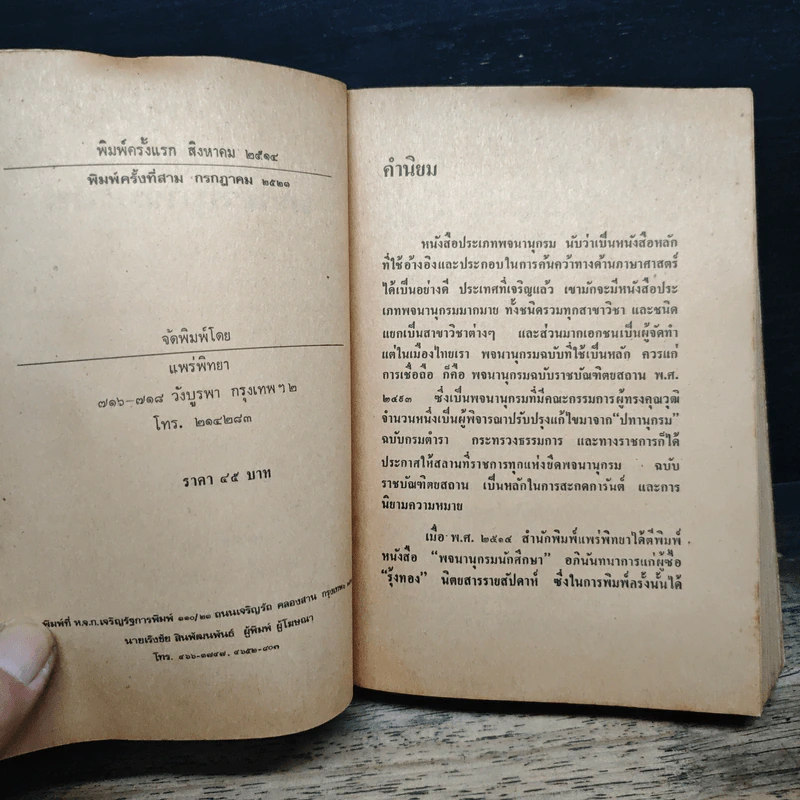 พิมพ์ครั้งแรก สิงหาคม ๒๕๑๔
พิมพ์ครั้งที่สาม กรกฎาคม ๒๕๒๑
จัดพิมพ์โดย
แพร่พิทยา
๗๑๖-๗๑๘ วังบูรพา กรุงเทพฯ ๒
โทร. ๒๑๔๒๘๓
ราคา ๔๕ บาท
พิมพ์ที่ ห.จ.ก.เจริญรัฐการพิมพ์ ๑๑๐/๒๑ ถนนเจริญรัถ คลองสาน กรุงเทพฯ
นายเริงชัย สินพัฒนพันธ์ ผู้พิมพ์ ผู้โฆษณา
โทร. ๔๖๖-๑๗๔๗, ๔๖๕๒-๘๐๓
คำนิยม
หนังสือประเภทพจนานุกรม นับว่าเป็นหนังสือหลัก
ที่ใช้อ้างอิงและประกอบในการค้นคว้าทางด้านภาษาศาสตร์
ได้เป็นอย่างดี ประเทศที่เจริญแล้ว เขามักจะมีหนังสือประ
เภทพจนานุกรมมากมาย ทั้งชนิดรวมทุกสาขาวิชา และชนิด
แยกเป็นสาขาวิชาต่างๆ และส่วนมากเอกชนเป็นผู้จัดทำ
แต่ในเมืองไทยเรา พจนานุกรมฉบับที่ใช้เป็นหลัก ควรแก่
การเชื่อถือ ก็คือ พจนานุกรมฉบับราชบัณฑิตยสถาน พ.ศ.
๒๔๙๓ ซึ่งเป็นพจนานุกรมที่มีคณะกรรมการผู้ทรงคุณวุฒิ
จำนวนหนึ่งเป็นผู้พิจารณาปรับปรุงแก้ไขมาจาก "ปทานุกรม"
ฉบับกรมตำรา กระทรวงธรรมการ และทางราชการก็ได้
ประกาศให้สถานที่ราชการทุกแห่งยึดพจนานุกรม ฉบับ
ราชบัณฑิตยสถาน เป็นหลักในการสะกดการันต์ และการ
นิยามความหมาย
เมื่อ พ.ศ. ๒๕๑๔ สำนักพิมพ์แพร่พิทยาได้ตีพิมพ์
หนังสือ "พจนานุกรมนักศึกษา" อภินันทนาการแก่ผู้ซื้อ
"รุ้งทอง" นิตยสารรายสัปดาห์ ซึ่งในการพิมพ์ครั้งนั้นได้